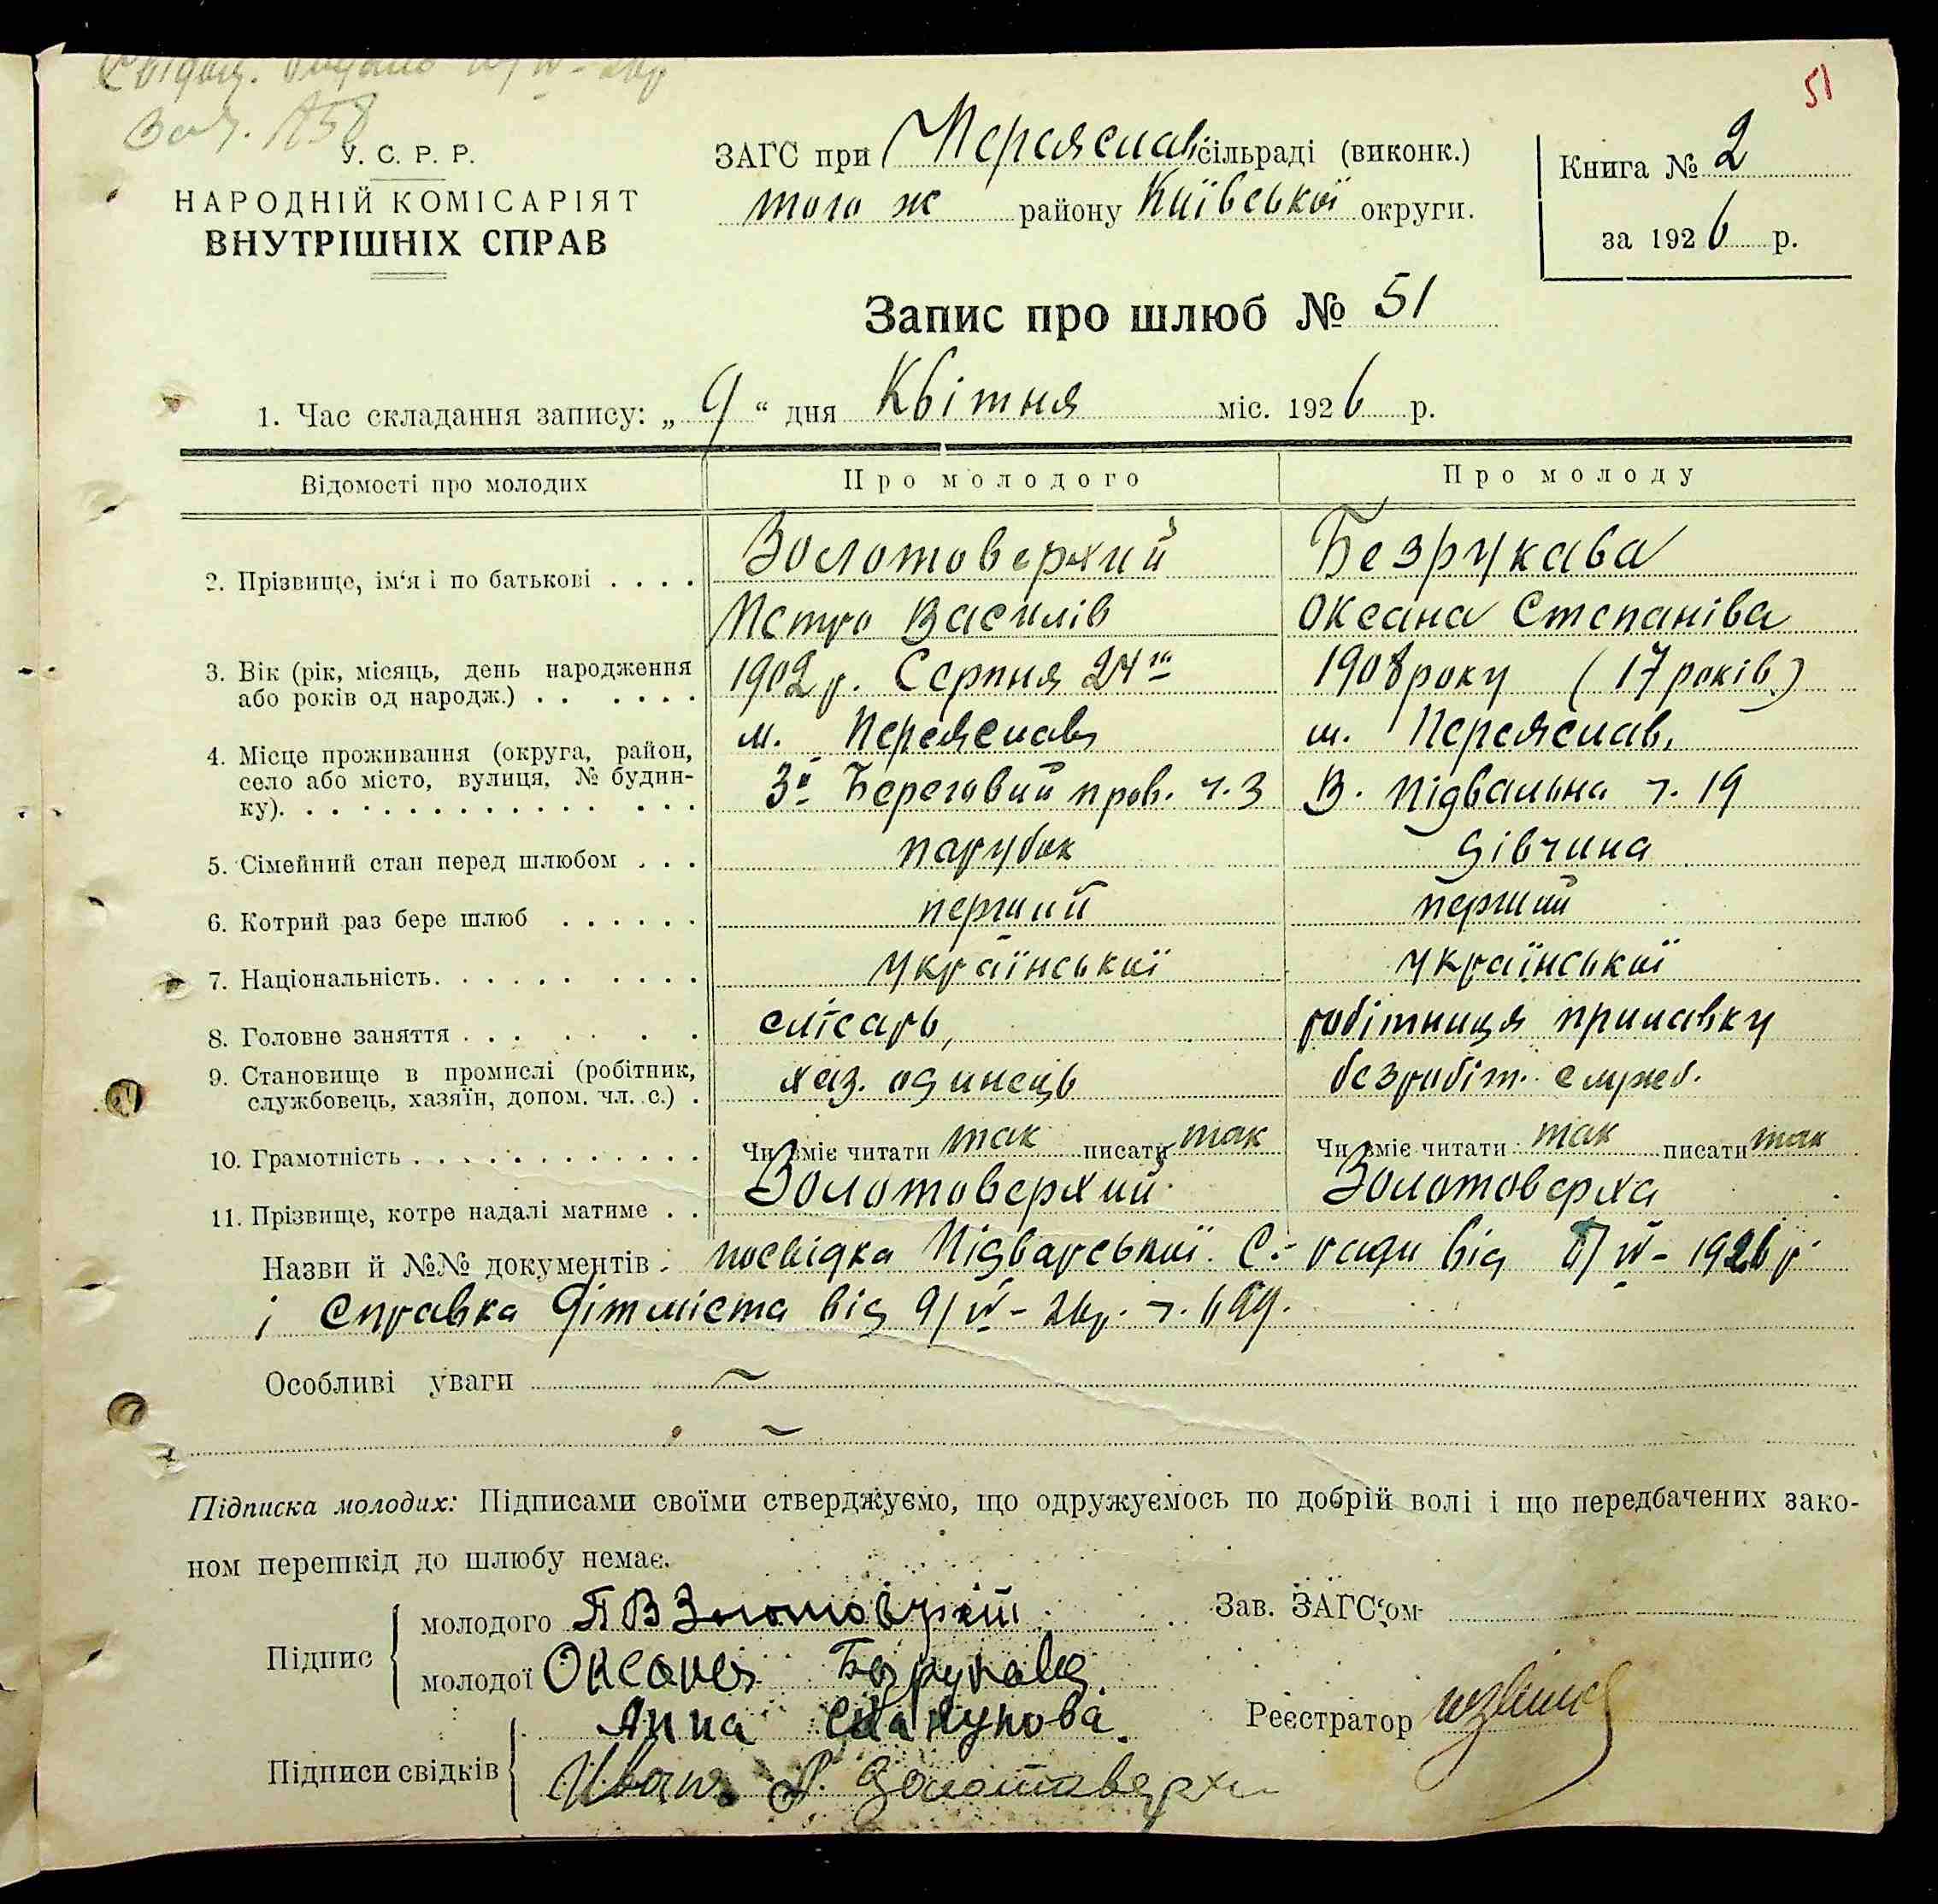 Свідоц. видано 9/IV-26р
51
У. С. Р. Р.
НАРОДНІЙ КОМІСАРІЯТ
ВНУТРІШНІХ СПРАВ
ЗАГС при Переяслав сільраді (виконк.)
того ж району Київської округи.
Книга № 2
за 1926 р.
Запис про шлюб № 51
1. Час складання запису: „ 9 “ дня Квітня міс. 1926 р.
Відомості про молодих Про молодого Про молоду
2. Прізвище, ім‘я і по батькові . . . . Золотоверхий Безрукава
Петро Василів Оксана Степаніва
3. Вік (рік, місяць, день народження 1902 р. Серпня 24го 1908 року (17 років)
або років од народж.) . . . . . .
4. Місце проживання (округа, район, м. Переяслав м. Переяслав,
село або місто, вулиця, № будин- 3й Береговий пров. ч. 3 В. Підвальна ч. 19
ку). . . . . . . . . . . . . . . .
5. Сімейний стан перед шлюбом . . . парубок дівчина
6. Котрий раз бере шлюб . . . . . . перший перший
7. Національність. . . . . . . . . . української української
8. Головне заняття . . . . . . . слісарь, робітниця прилавку
9. Становище в промислі (робітник, хаз. одинець безробіт. служб.
службовець, хазяїн, допом. чл. с.) .
10. Грамотність . . . . . . . . . . . . Чи вміє читати так писати так Чи вміє читати так писати так
11. Прізвище, котре надалі матиме . . Золотоверхий Золотоверха
Назви й №№ документів: посвідка Підварської С.-ради від /IV-1926 р.
і Справка від 9/IV-26р. ч.
Особливі уваги ~
~
Підписка молодих: Підписами своїми стверджуємо, що одружуємось по добрій волі і що передбачених зако-
ном перешкід до шлюбу немає.
Підпис
молодого П В Золотоверхий
молодої Оксана Безрукава
Зав. ЗАГС‘ом
Підписи свідків
Анна
Иван Золотоверхи
Реєстратор